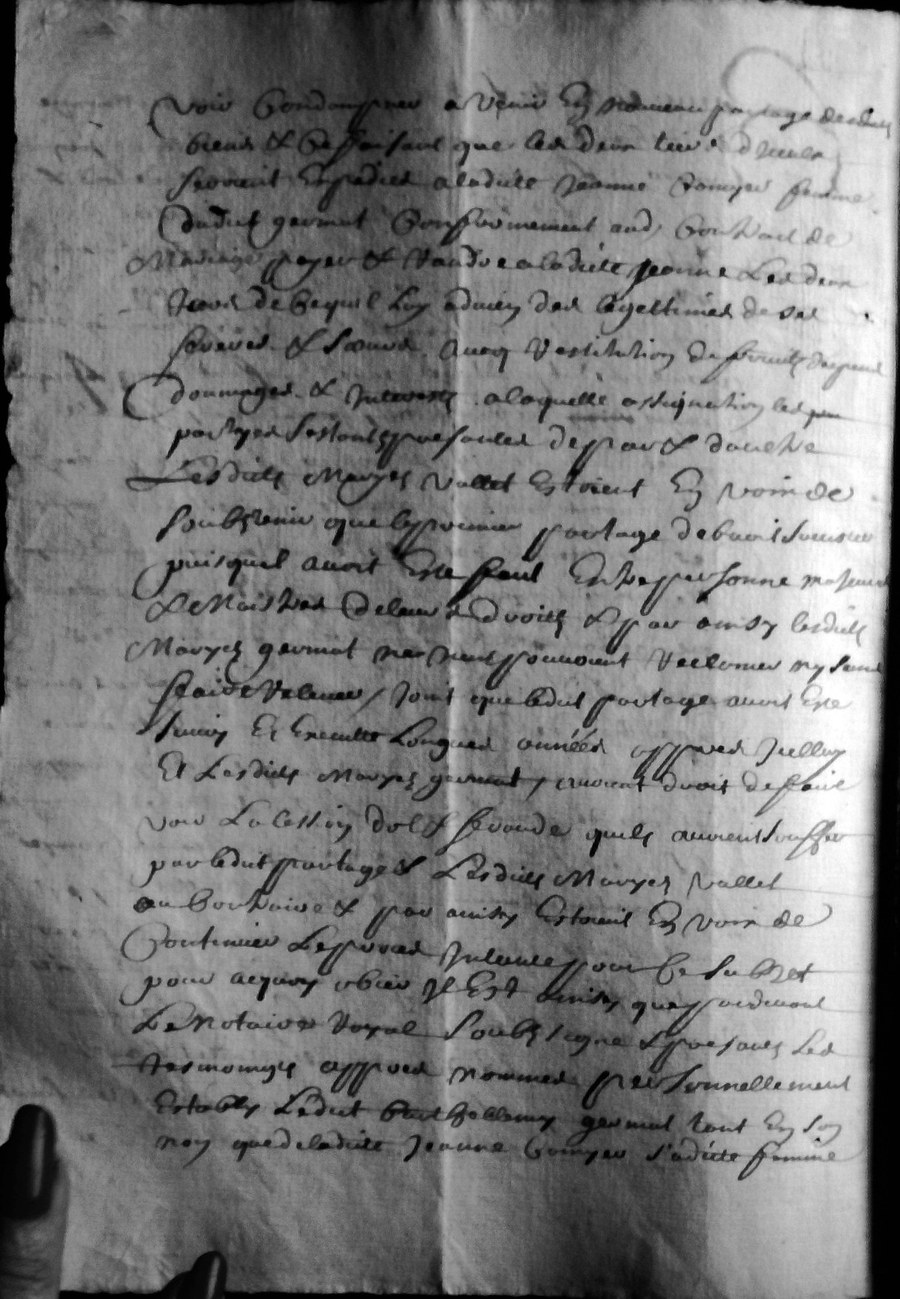 voir Condampner a venir En nouveau partage desdits
biens & Ce faisant que les deux tiers d'Iceux
seroient Expediés a ladite Jeanne femme
dudit germat Conformement aud, Contract de
Mariage payer & randre a ladite Jeanne Les deux
tiers de Ce quil luy advien des legettimes de ses
freres & sœurs avecq restitution de fruits despans
doumages & Interests a laquelle assignation les
partyes sestoints presantes de part & dautre
Lesdits Maryes vallet Estoient En voix de
soubstenir que le premier partage debvoit
puis quil avoit Esté faict Entre personne majeure
& Maistres de leurs droits & par ainsy lesdits
Maryes germat ne pouvoient reclamer ny sans
faire valeur, Joint que ledit partage avoit Esté
suivy Et Executte Longues années appres Icelluy
Et Lesdits Maryes germat, avoient droit de faire
voir La lesion dol & fraude quils avoient souffer
par ledit partage & Lesdits Maryes vallet
au Contraire & par ainsy Estoient En voix de
Continuer Le proces Intente pour Ce subiet
pour a quoy obier Il Est ainsy que pardevant
Le notaire royal soubsigne & presants Les
tesmoings appres nommes personnellement
Estably Ledit barthellemy germat tant En son
nom que de ladite Jeanne sadite femme